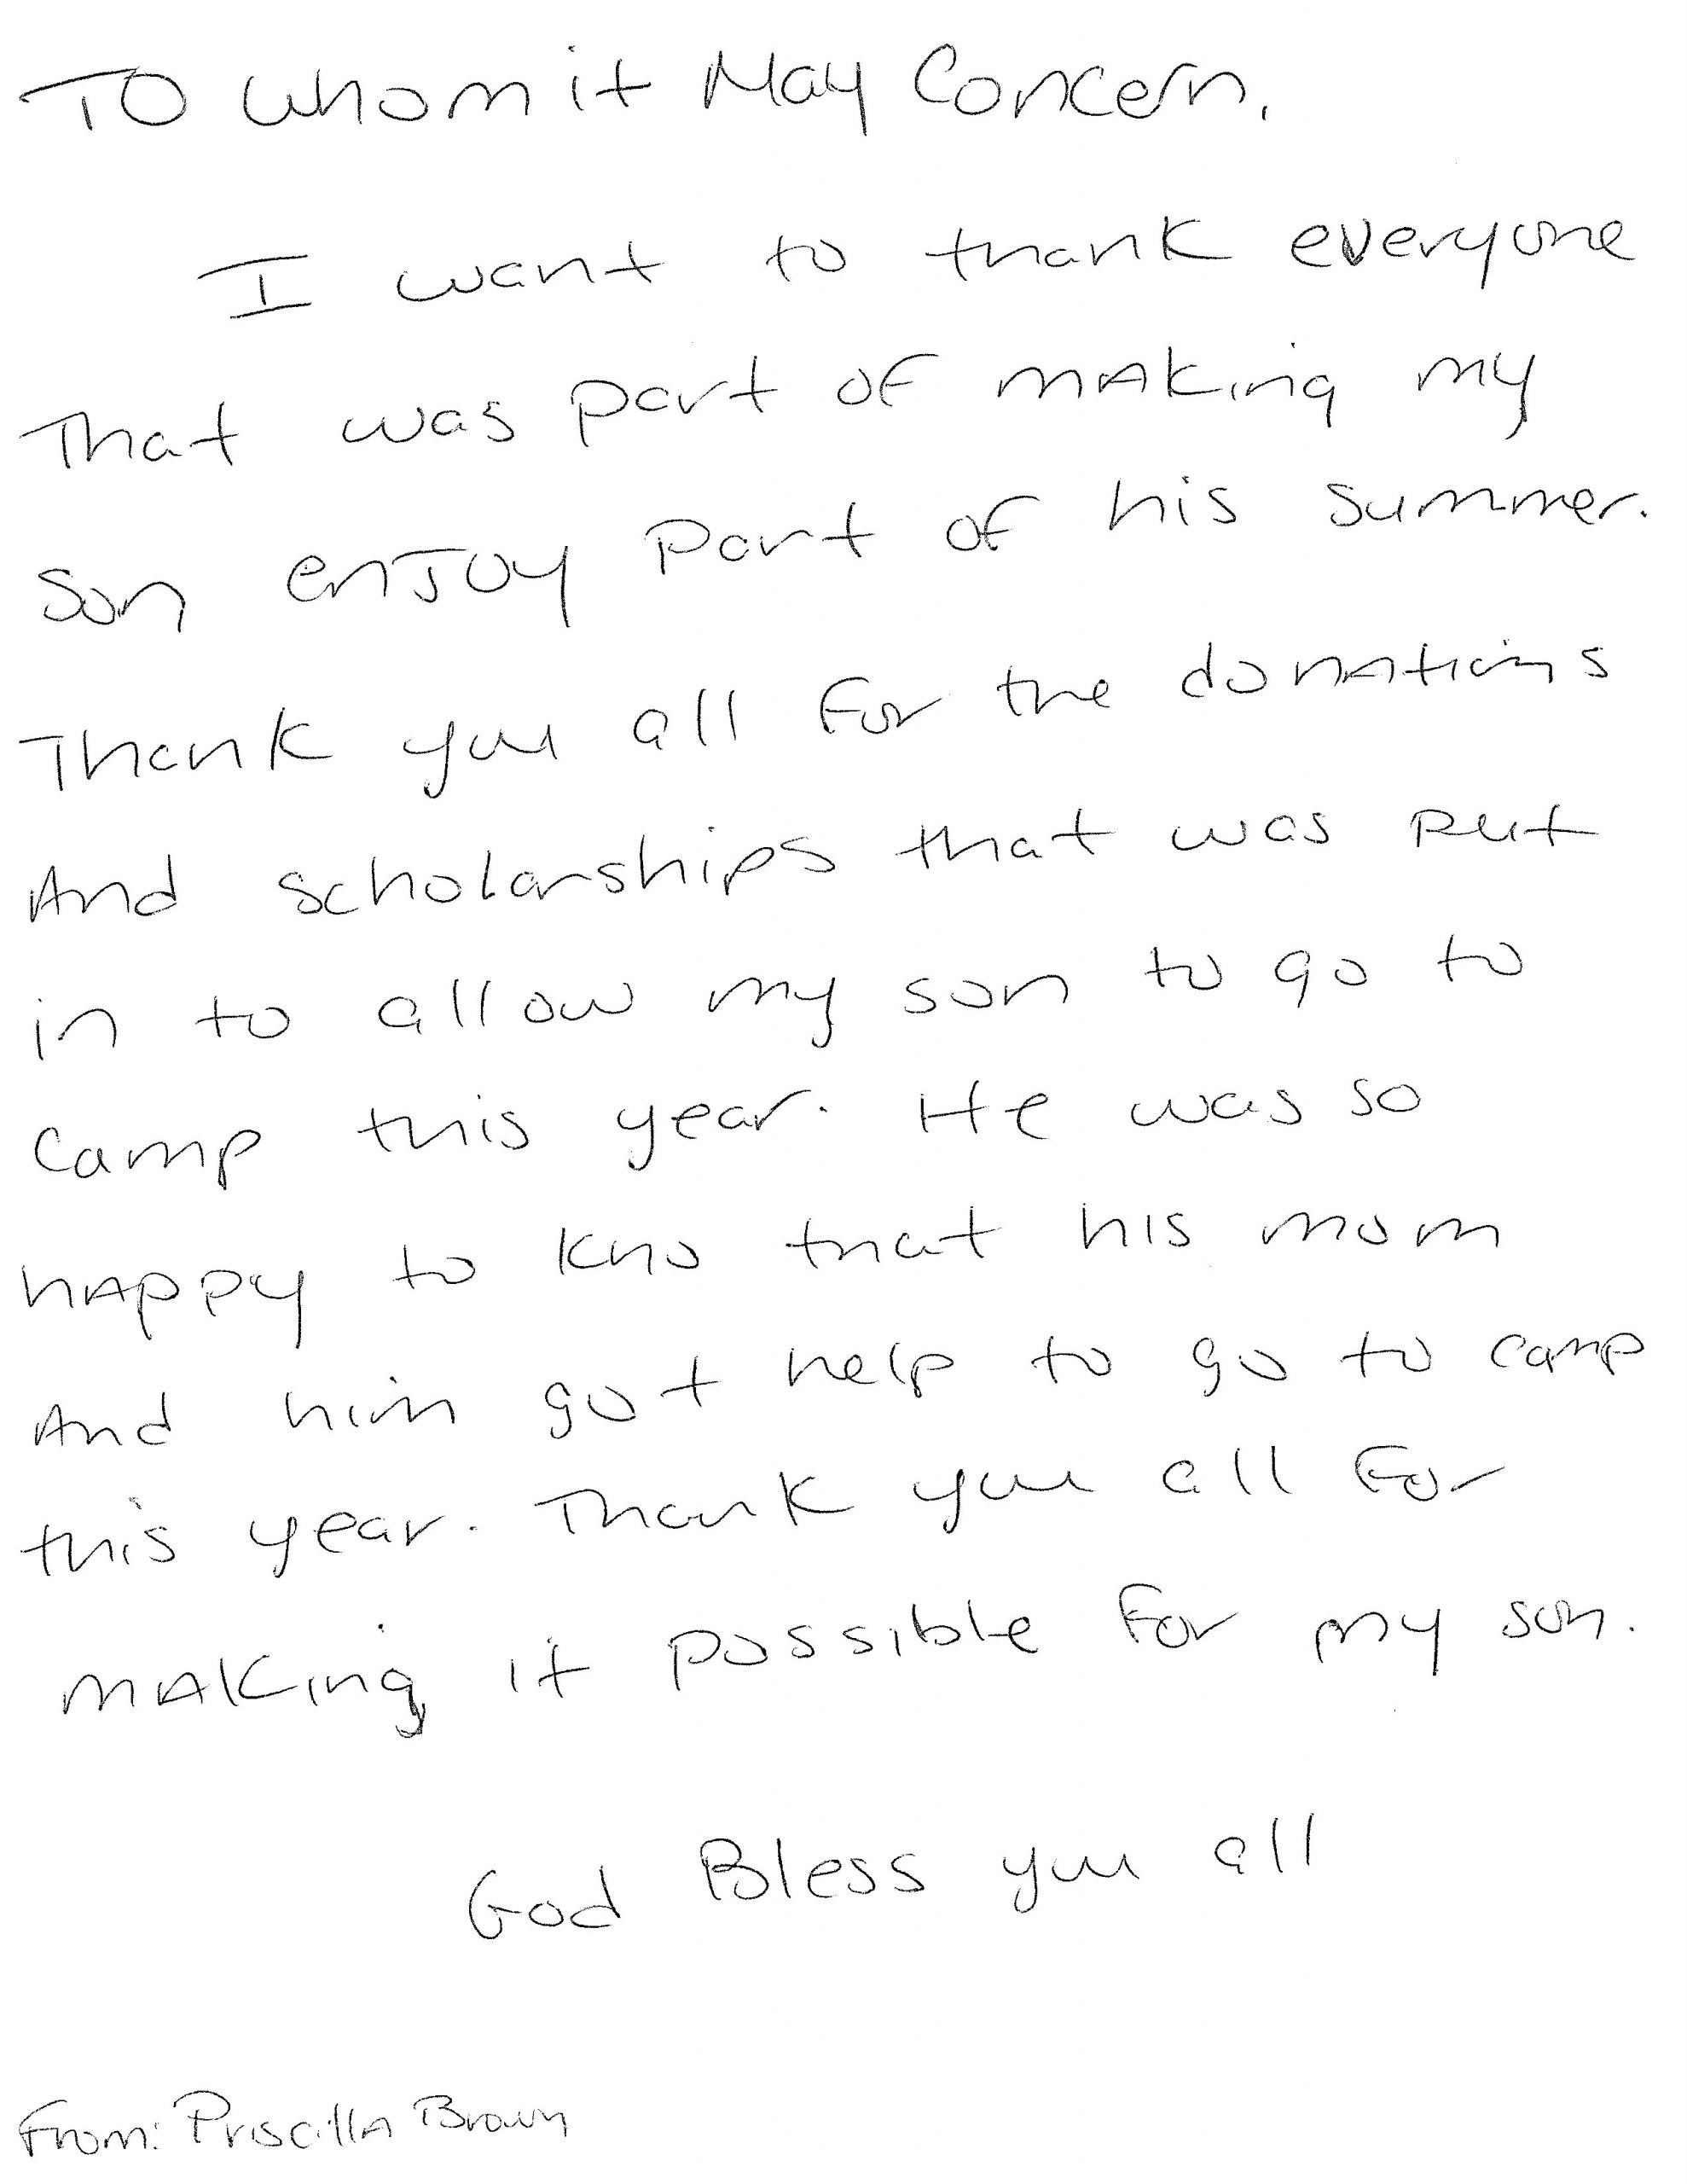 To whom it May Concern,
I want to thank everyone
That was part of making my
son enjoy part of his summer.
Thank you all for the donations
And scholarships that was put
in to allow my son to go to
Camp this year. He was so
happy to kno that his mom
And him got help to go to camp
this year. Thank you all for
making it possible for my son.
God Bless you all
From: Priscilla Brown